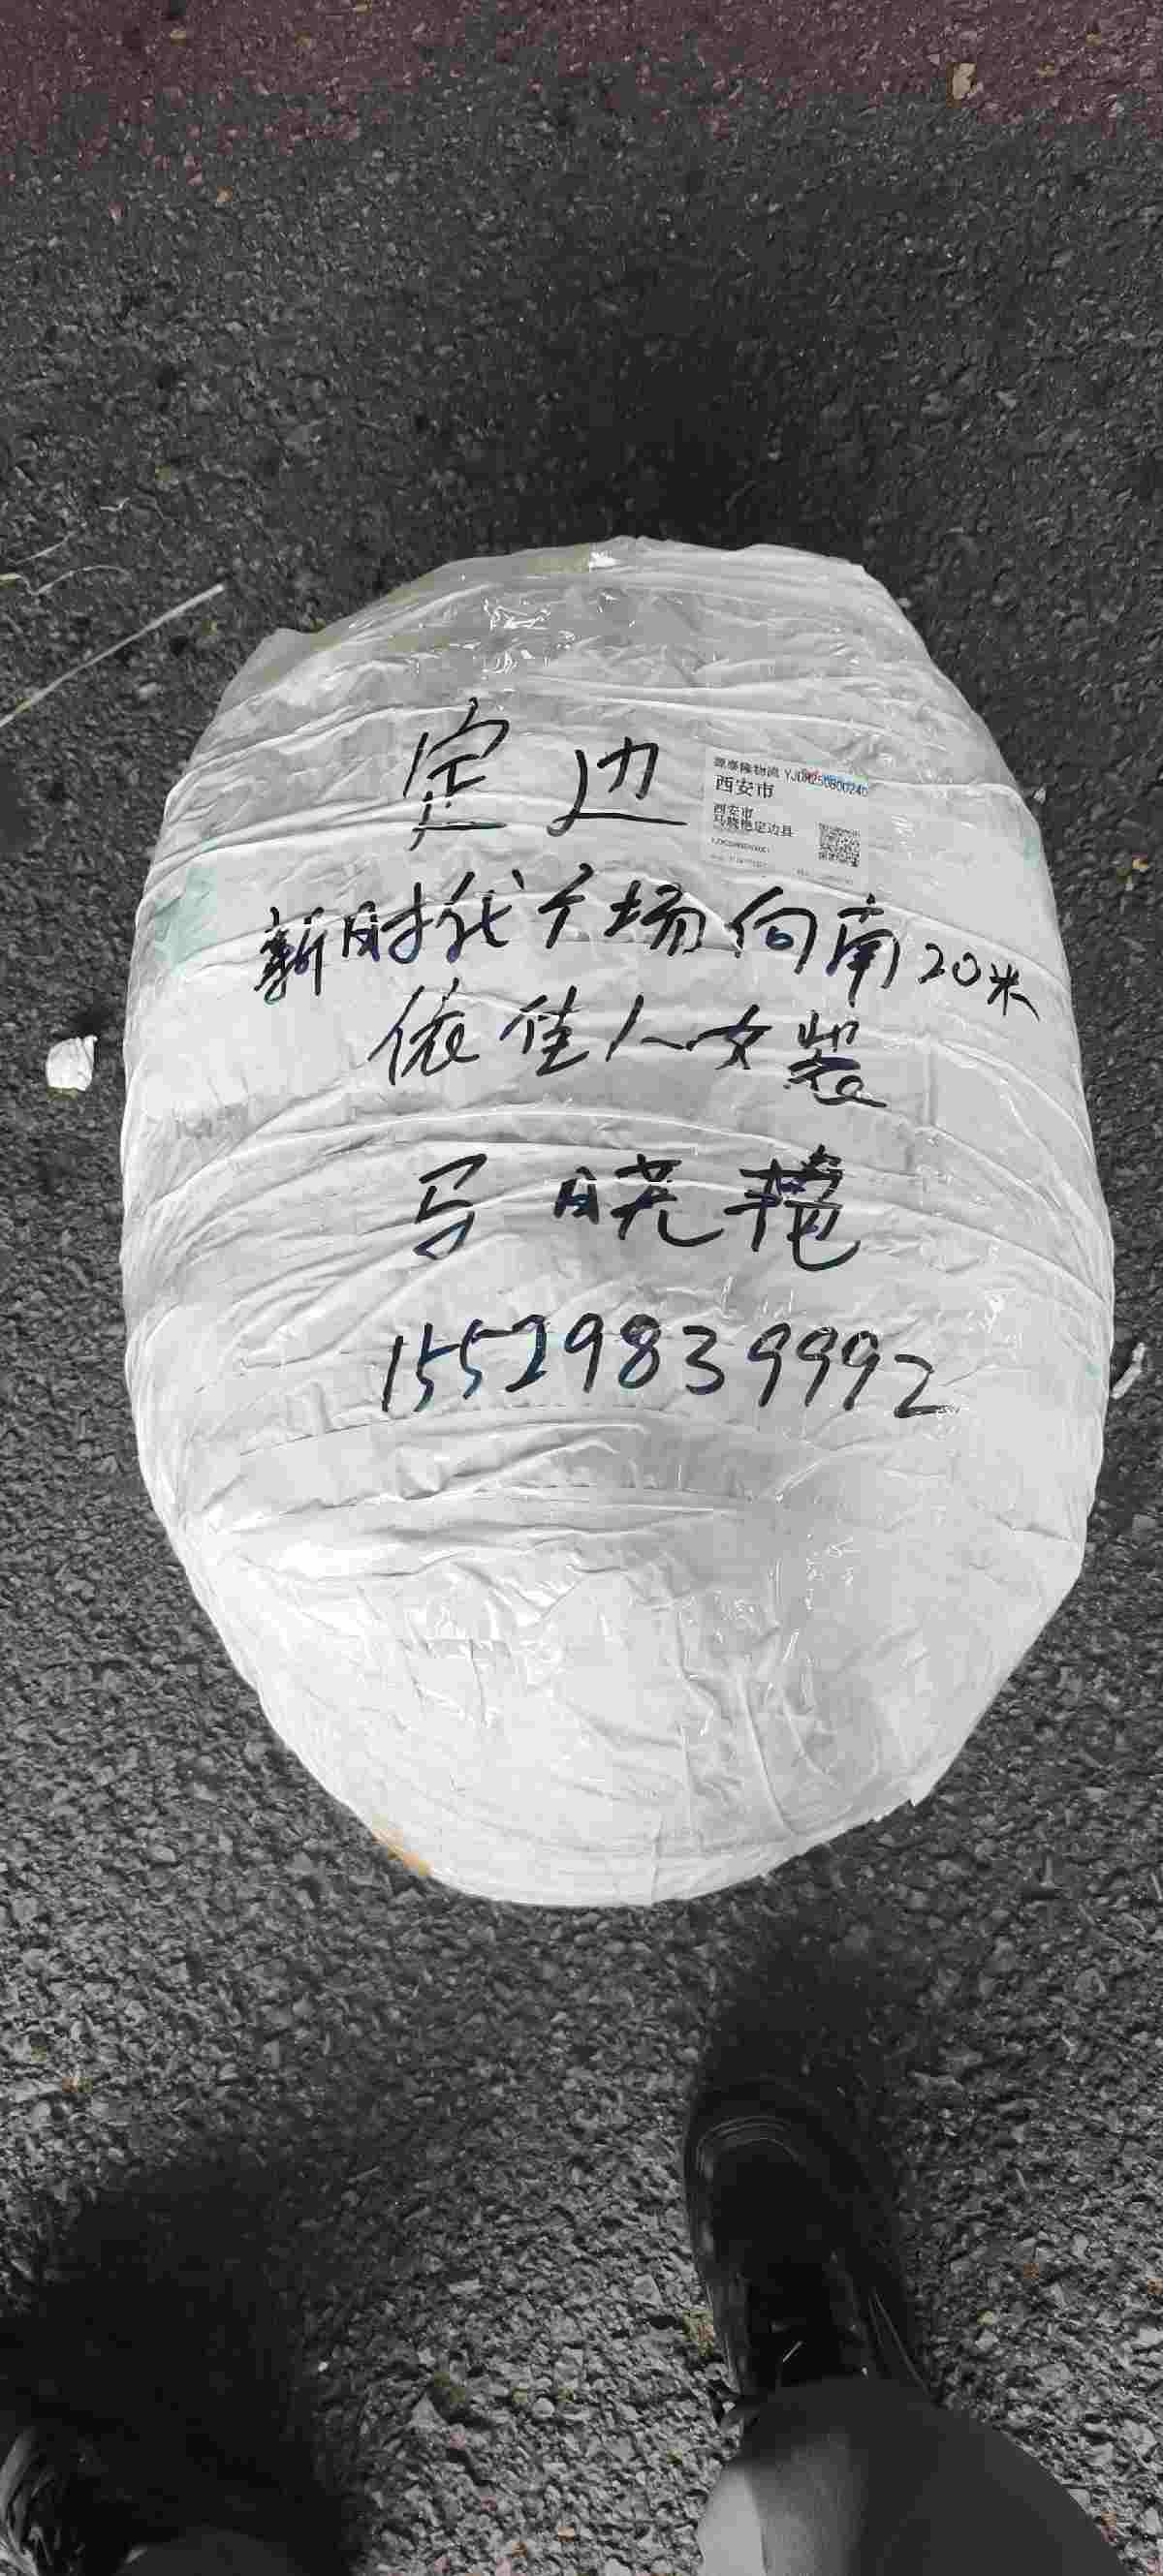 定边
源泰隆物流 YJD8250800240
西安市
西安市
马晓艳定边县
新时代广场向南20米
依佳人女装
马晓艳
15529839992